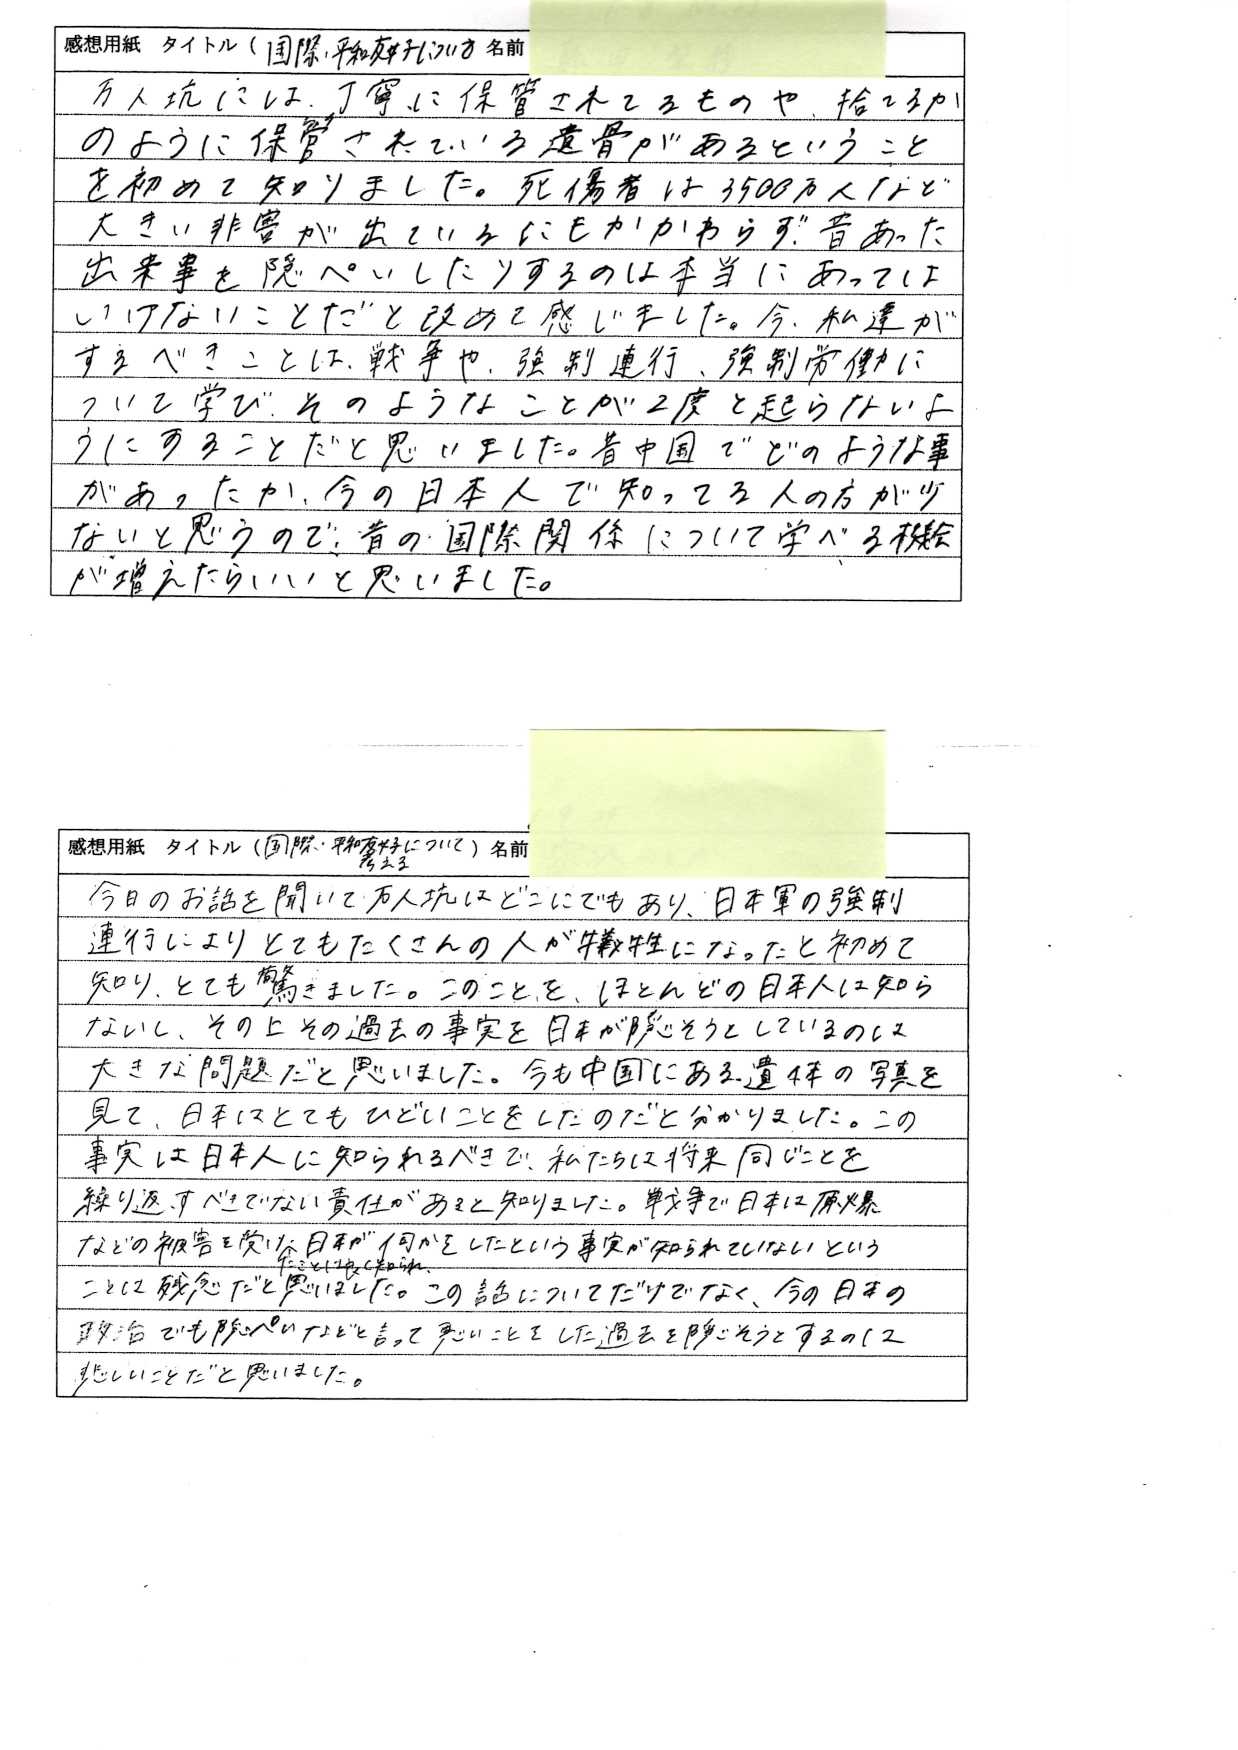 感想用紙 タイトル（国際・平和友好について 名前
万人坑には、丁寧に保管されてるものや、捨てるか
のように保管されている遺骨があるということ
を初めて知りました。死傷者は3500万人など
大きい非害が出ているにもかかわらず、昔あった
出来事を隠ぺいしたりするのは本当にあっては
いけないことだと改めて感じました。今、私達が
するべきことは、戦争や、強制連行、強制労働に
ついて学び、そのようなことが2度と起らないよ
うにすることだと思いました。昔中国でどのような事
があったか、今の日本人で知ってる人の方が少
ないと思うので、昔の国際関係について学べる機会
が増えたらいいと思いました。
感想用紙 タイトル（国際・平和友好について）名前
考える
今日のお話を聞いて万人坑はどこにでもあり、日本軍の強制
連行によりとてもたくさんの人が犠牲になったと初めて
知り、とても驚きました。このことを、ほとんどの日本人は知ら
ないし、その上その過去の事実を日本が隠そうとしているのは
大きな問題だと思いました。今も中国にある遺体の写真を
見て、日本はとてもひどいことをしたのだと分かりました。この
事実は日本人に知られるべきで、私たちは将来同じことを
繰り返すべきでない責任があると知りました。戦争で日本は原爆
などの被害を受け、日本が何かをしたという事実が知られていないという
たことは良く知られ、
ことは残念だと思いました。この話についてだけでなく、今の日本の
政治でも隠ぺいなどと言って悪いことをした過去を隠そうとするのは
悲しいことだと思いました。